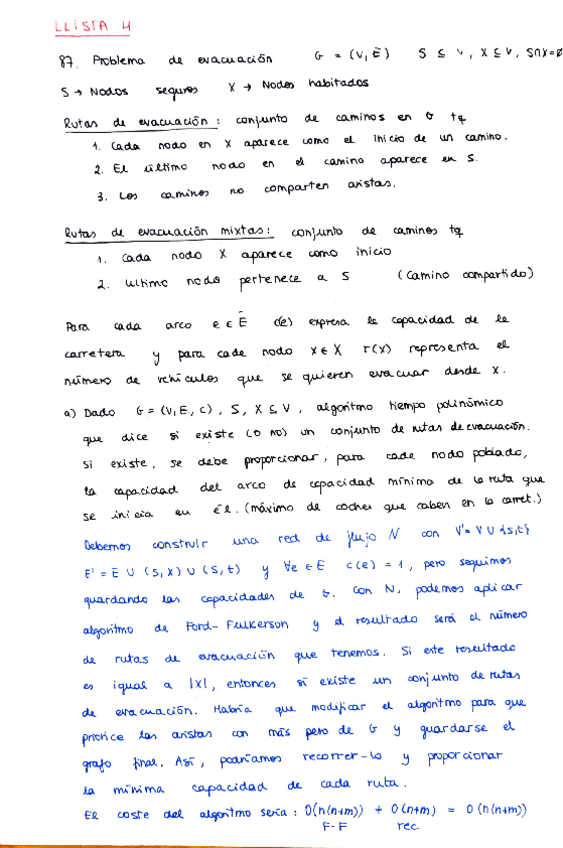 LLISTA 4
87. Problema de evacuación G = (V, E) S ⊆ V, X ⊆ V, S∩X=∅
S → Nodos seguros X → Nodos habitados
Rutas de evacuación: conjunto de caminos en G tq
1. Cada nodo en X aparece como el inicio de un camino.
2. El último nodo en el camino aparece en S.
3. Los caminos no comparten aristas.
Rutas de evacuación mixtas: conjunto de caminos tq
1. Cada nodo X aparece como inicio
2. Ultimo nodo pertenece a S (Camino compartido)
Para cada arco e ∈ E c(e) expresa la capacidad de la
carretera y para cada nodo x ∈ X r(x) representa el
número de vehículos que se quieren evacuar desde x.
a) Dado G = (V, E, c), S, X ⊆ V, algoritmo tiempo polinómico
que dice si existe (o no) un conjunto de rutas de evacuación.
Si existe, se debe proporcionar, para cada nodo poblado,
la capacidad del arco de capacidad mínima de la ruta que
se inicia en él. (máximo de coches que caben en la carret.)
Debemos construir una red de flujo N con V' = V ∪ {s,t}
E' = E ∪ (S, X) ∪ (S, t) y ∀e ∈ E c(e) = 1, pero seguimos
guardando las capacidades de G. Con N, podemos aplicar
algoritmo de Ford-Fulkerson y el resultado será el número
de rutas de evacuación que tenemos. Si este resultado
es igual a |X|, entonces sí existe un conjunto de rutas
de evacuación. Habría que modificar el algoritmo para que
priorice las aristas con más peso de G y guardarse el
grafo final. Así, podríamos recorrer-lo y proporcionar
la mínima capacidad de cada ruta.
El coste del algoritmo sería: O(n(n+m)) + O(n+m) = O(n(n+m))
F-F rec.